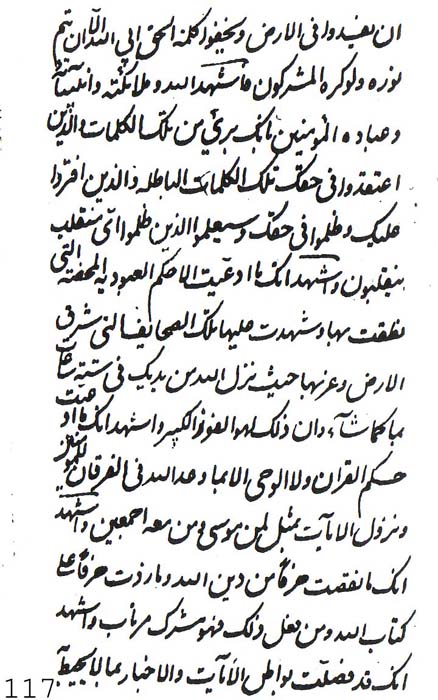 ان یفسدوا فی الارض و یخفوا کلمة الحق ابی الله الا ان یتم
نوره و لو کره المشرکون فأستشهد الله و ملائکته و انبیآئه
و عباده المؤمنین بانک بریٔ من تلک الکلمات والذین
اعتقدوا فی حقک تلک الکلمات الباطله والذین افتروا
علیک و ظلموا فی حقک و سیعلموا الذین ظلموا ای منقلب
ینقلبون و اشهد انک ما ادعیت الا حکم العبودیه المحضة التی
نطقت بها و شهدت علیها تلک الصحائف التی شرق
الارض و غربها حیث نزل الله من یدیک فی ستة ساعات
بما کما شآء و ان ذلک لهو الفوز الکبیر و اشهد انک ما ادعیت
حکم القران و لا الوحی الا بما وعد الله فی الفرقان للمؤمنین
و نزول الآیات بمثل لمن موسی و من معه اجمعین و اشهد
انک ما نقصت حرفاً من دین الله و ما زدت حرفاً علی
کتاب الله و من یقل ذلک فهو مشرک مرتاب و اشهد
انک قد فصلت بواطن الآیات و الاخبار بما لا یحیط
117